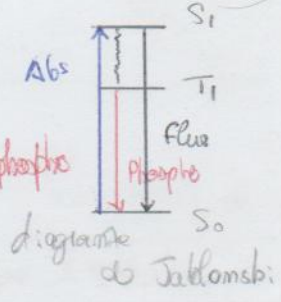 S₁
Abs
T₁
Fluo
phospho
Phospho
S₀
diagramme
de Jablonski